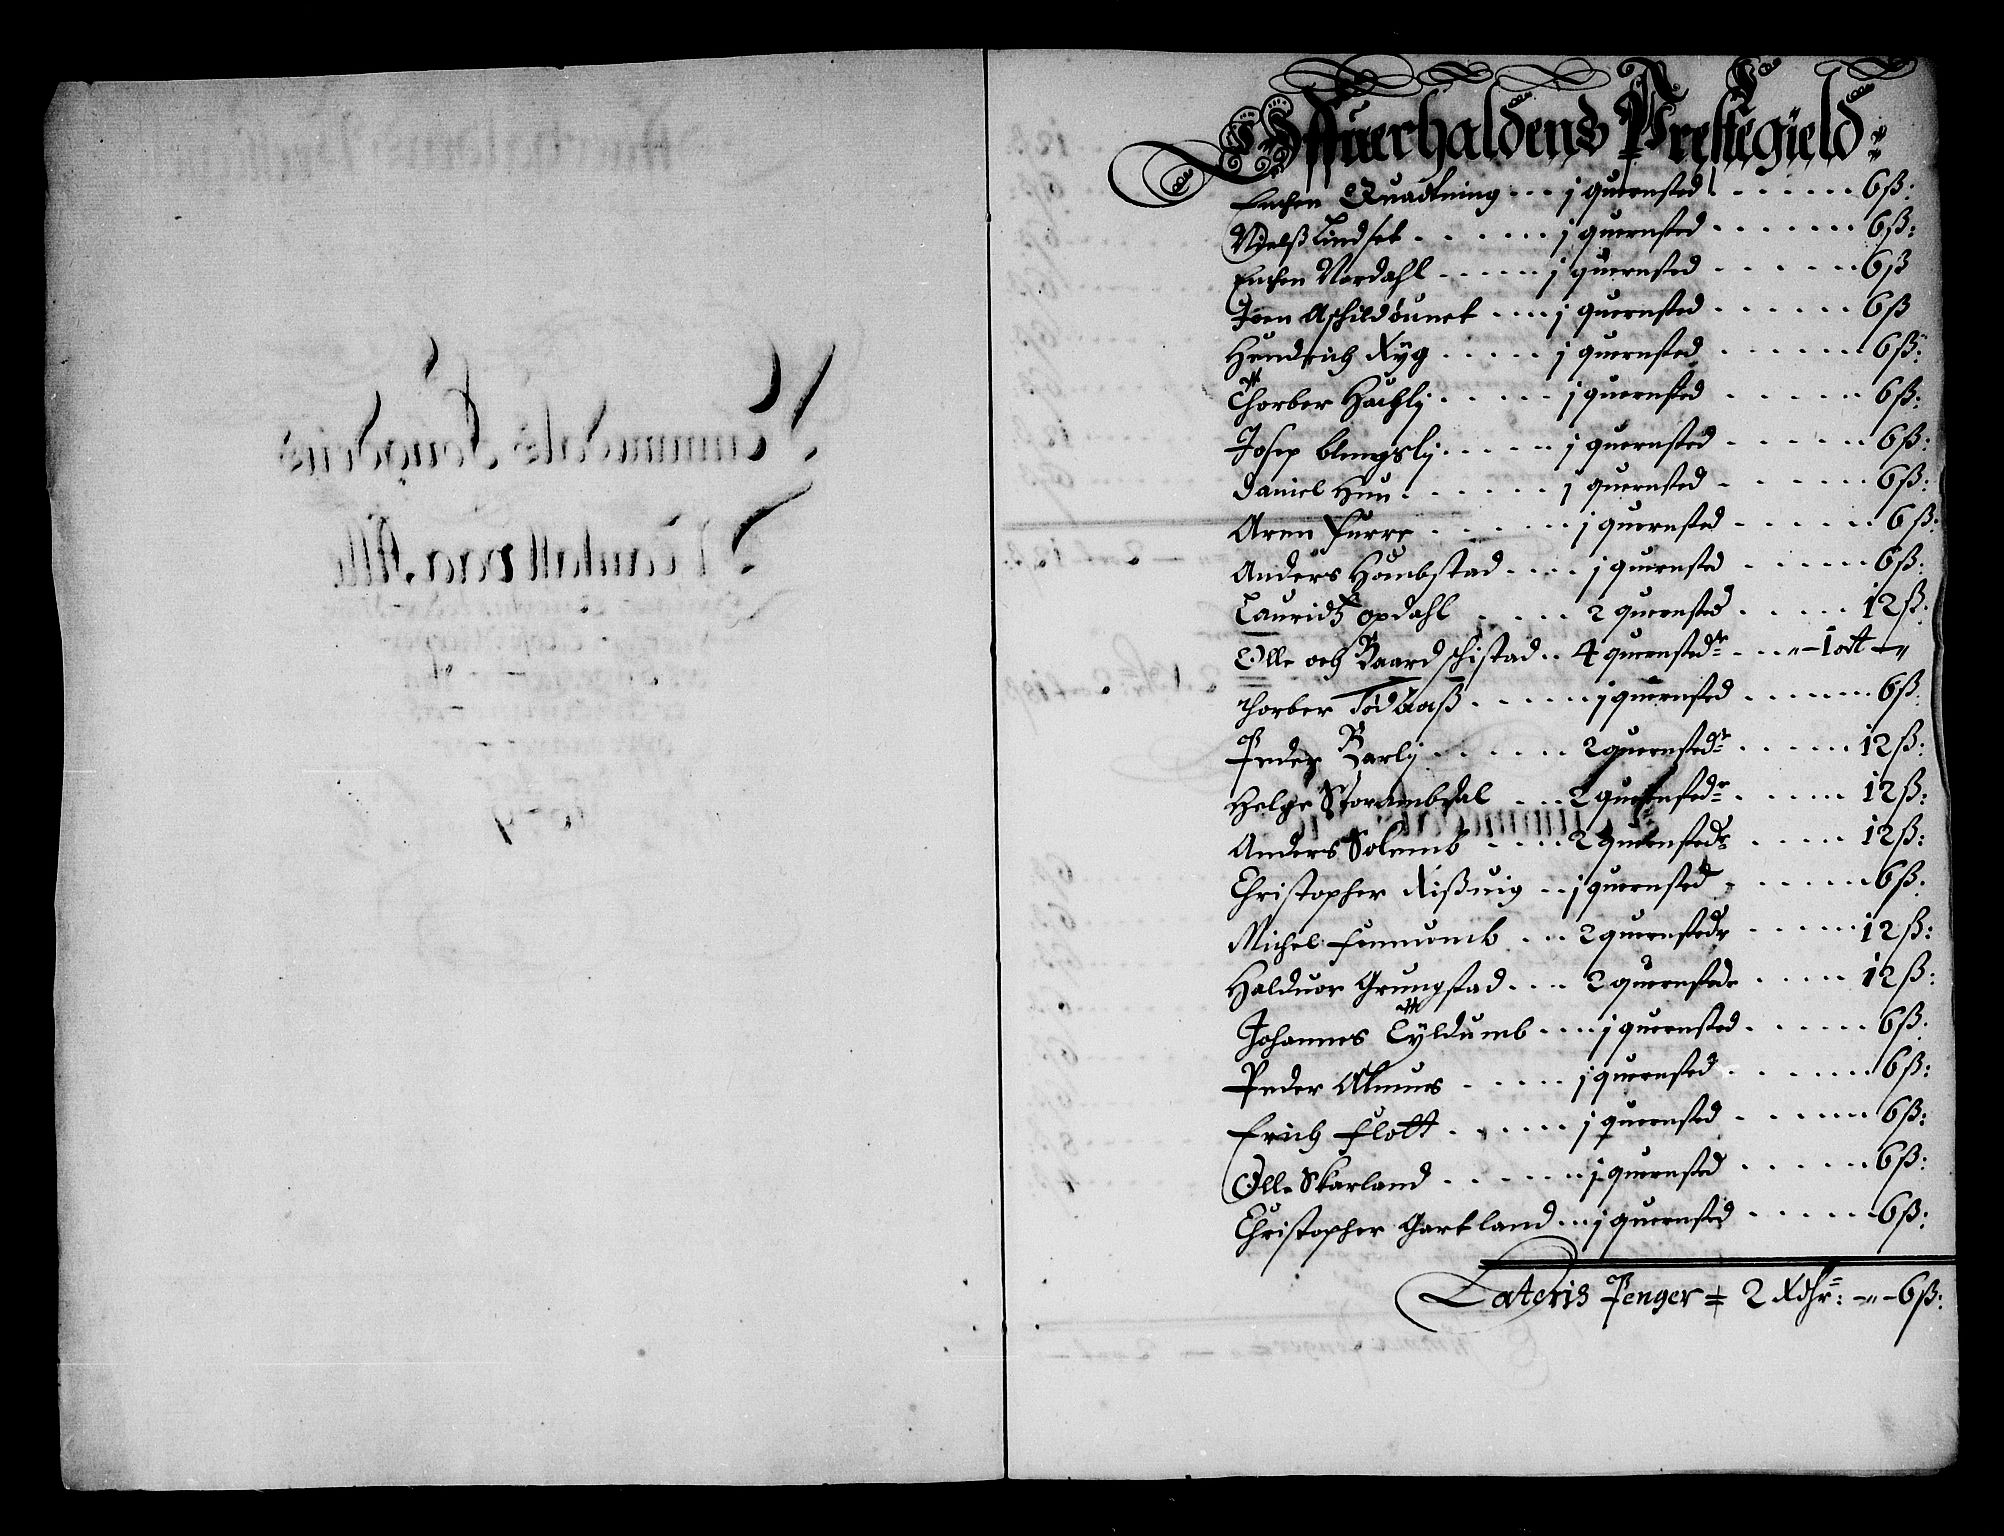 Offuerhaldens Prestegield:
Enchen Quadtning - - - j quernsted - - - - - - 6ß:
Nielß Lindset - - - - - - j quernsted - - - - - - 6ß:
Enchen Nordahl - - - - - - j quernsted - - - - - - 6ß
Joen Aschildøunet - - - - j quernsted - - - - - - 6ß
Hendrich Ryg - - - - - j quernsted - - - - - - 6ß:
Thorber Hachlj - - - - - j quernsted - - - - - - 6ß:
Josep blengslj - - - - - j quernsted - - - - - - 6ß:
Daniel Hun - - - - - - j quernsted - - - - - - 6ß:
Aren Furre - - - - - - j quernsted - - - - - - 6ß:
Anders Hombstad - - - - j quernsted - - - - - - 6ß:
Lauridtz opdahl - - - - - 2 quernsted - - - - - 12ß:
Olle och Baard schistad - - 4 quernstedr - - - „ - 1 ort - „
Thorber Tødaaß - - - - - - j quernsted - - - - - - 6ß:
Peder Barlij - - - - - - 2 quernstedr - - - - - 12ß:
Helge Storambdal - - - 2 quernstedr - - - - - 12ß:
Anders Solemb - - - - 2 quernstedr - - - - - 12ß:
Christopher Rißuig - - j quernsted - - - - - - 6ß:
Michel Femuomb - - - 2 quernstedr - - - - - 12ß:
Halduor Grungstad - - - - 2 quernstedr - - - - - 12ß:
Johannes Eyldumb - - - - j quernsted - - - - - - 6ß:
Peder Almuus - - - - - j quernsted - - - - - - 6ß:
Erich Flott - - - - - - j quernsted - - - - - - 6ß:
Olle Skarland - - - - - - j quernsted - - - - - - 6ß:
Christopher Gartland - - - j quernsted - - - - - - 6ß:
Lateris Penger = 2 Rdhr: - „ - 6ß: